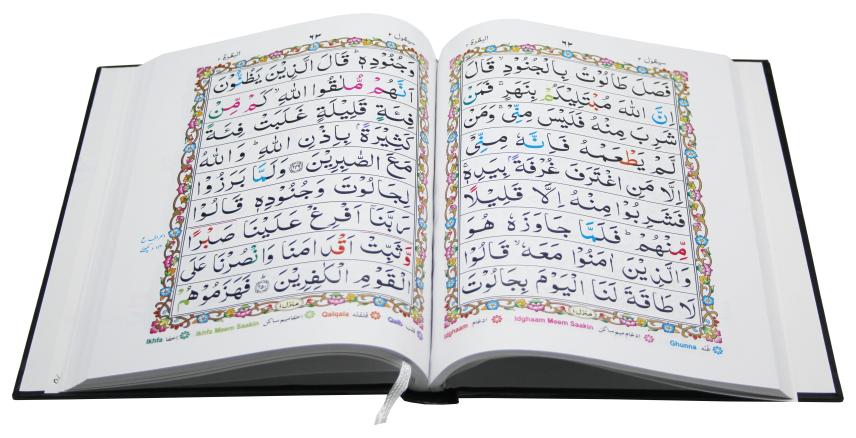 سيقول ٢
٦٢
البقرة ٢
فَصَلَ طَالُوْتُ بِالْجُنُوْدِ ۙ قَالَ
اِنَّ اللّٰهَ مُبْتَلِيْكُمْ بِنَهَرٍ ۚ فَمَنْ
شَرِبَ مِنْهُ فَلَيْسَ مِنِّىْ ۚ وَمَنْ
لَّمْ يَطْعَمْهُ فَاِنَّهٗ مِنِّىْٓ
اِلَّا مَنِ اغْتَرَفَ غُرْفَةًۢ بِيَدِهٖ ۚ
فَشَرِبُوْا مِنْهُ اِلَّا قَلِيْلًا
مِّنْهُمْ ؕ فَلَمَّا جَاوَزَهٗ هُوَ
وَالَّذِيْنَ اٰمَنُوْا مَعَهٗ ۙ قَالُوْا
لَا طَاقَةَ لَنَا الْيَوْمَ بِجَالُوْتَ
منزل ١
Idghaam ادغام Idghaam Meem Saakin ادغام ميم ساكن Ghunna غنه
سيقول ٢
٦٣
البقرة ٢
وَجُنُوْدِهٖ ؕ قَالَ الَّذِيْنَ يَظُنُّوْنَ
اَنَّهُمْ مُّلٰقُوا اللّٰهِ ۙ كَمْ مِّنْ
فِئَةٍ قَلِيْلَةٍ غَلَبَتْ فِئَةً
كَثِيْرَةًۢ بِاِذْنِ اللّٰهِ ؕ وَاللّٰهُ
مَعَ الصّٰبِرِيْنَ ﴿٢٤٩﴾ وَلَمَّا بَرَزُوْا
لِجَالُوْتَ وَجُنُوْدِهٖ قَالُوْا
رَبَّنَآ اَفْرِغْ عَلَيْنَا صَبْرًا
وَّثَبِّتْ اَقْدَامَنَا وَانْصُرْنَا عَلَى
الْقَوْمِ الْكٰفِرِيْنَ ﴿٢٥٠﴾ فَهَزَمُوْهُمْ
منزل ١
Ikhfa اخفا Ikhfa Meem Saakin اخفا ميم ساكن Qalqala قلقله Qalb قلب